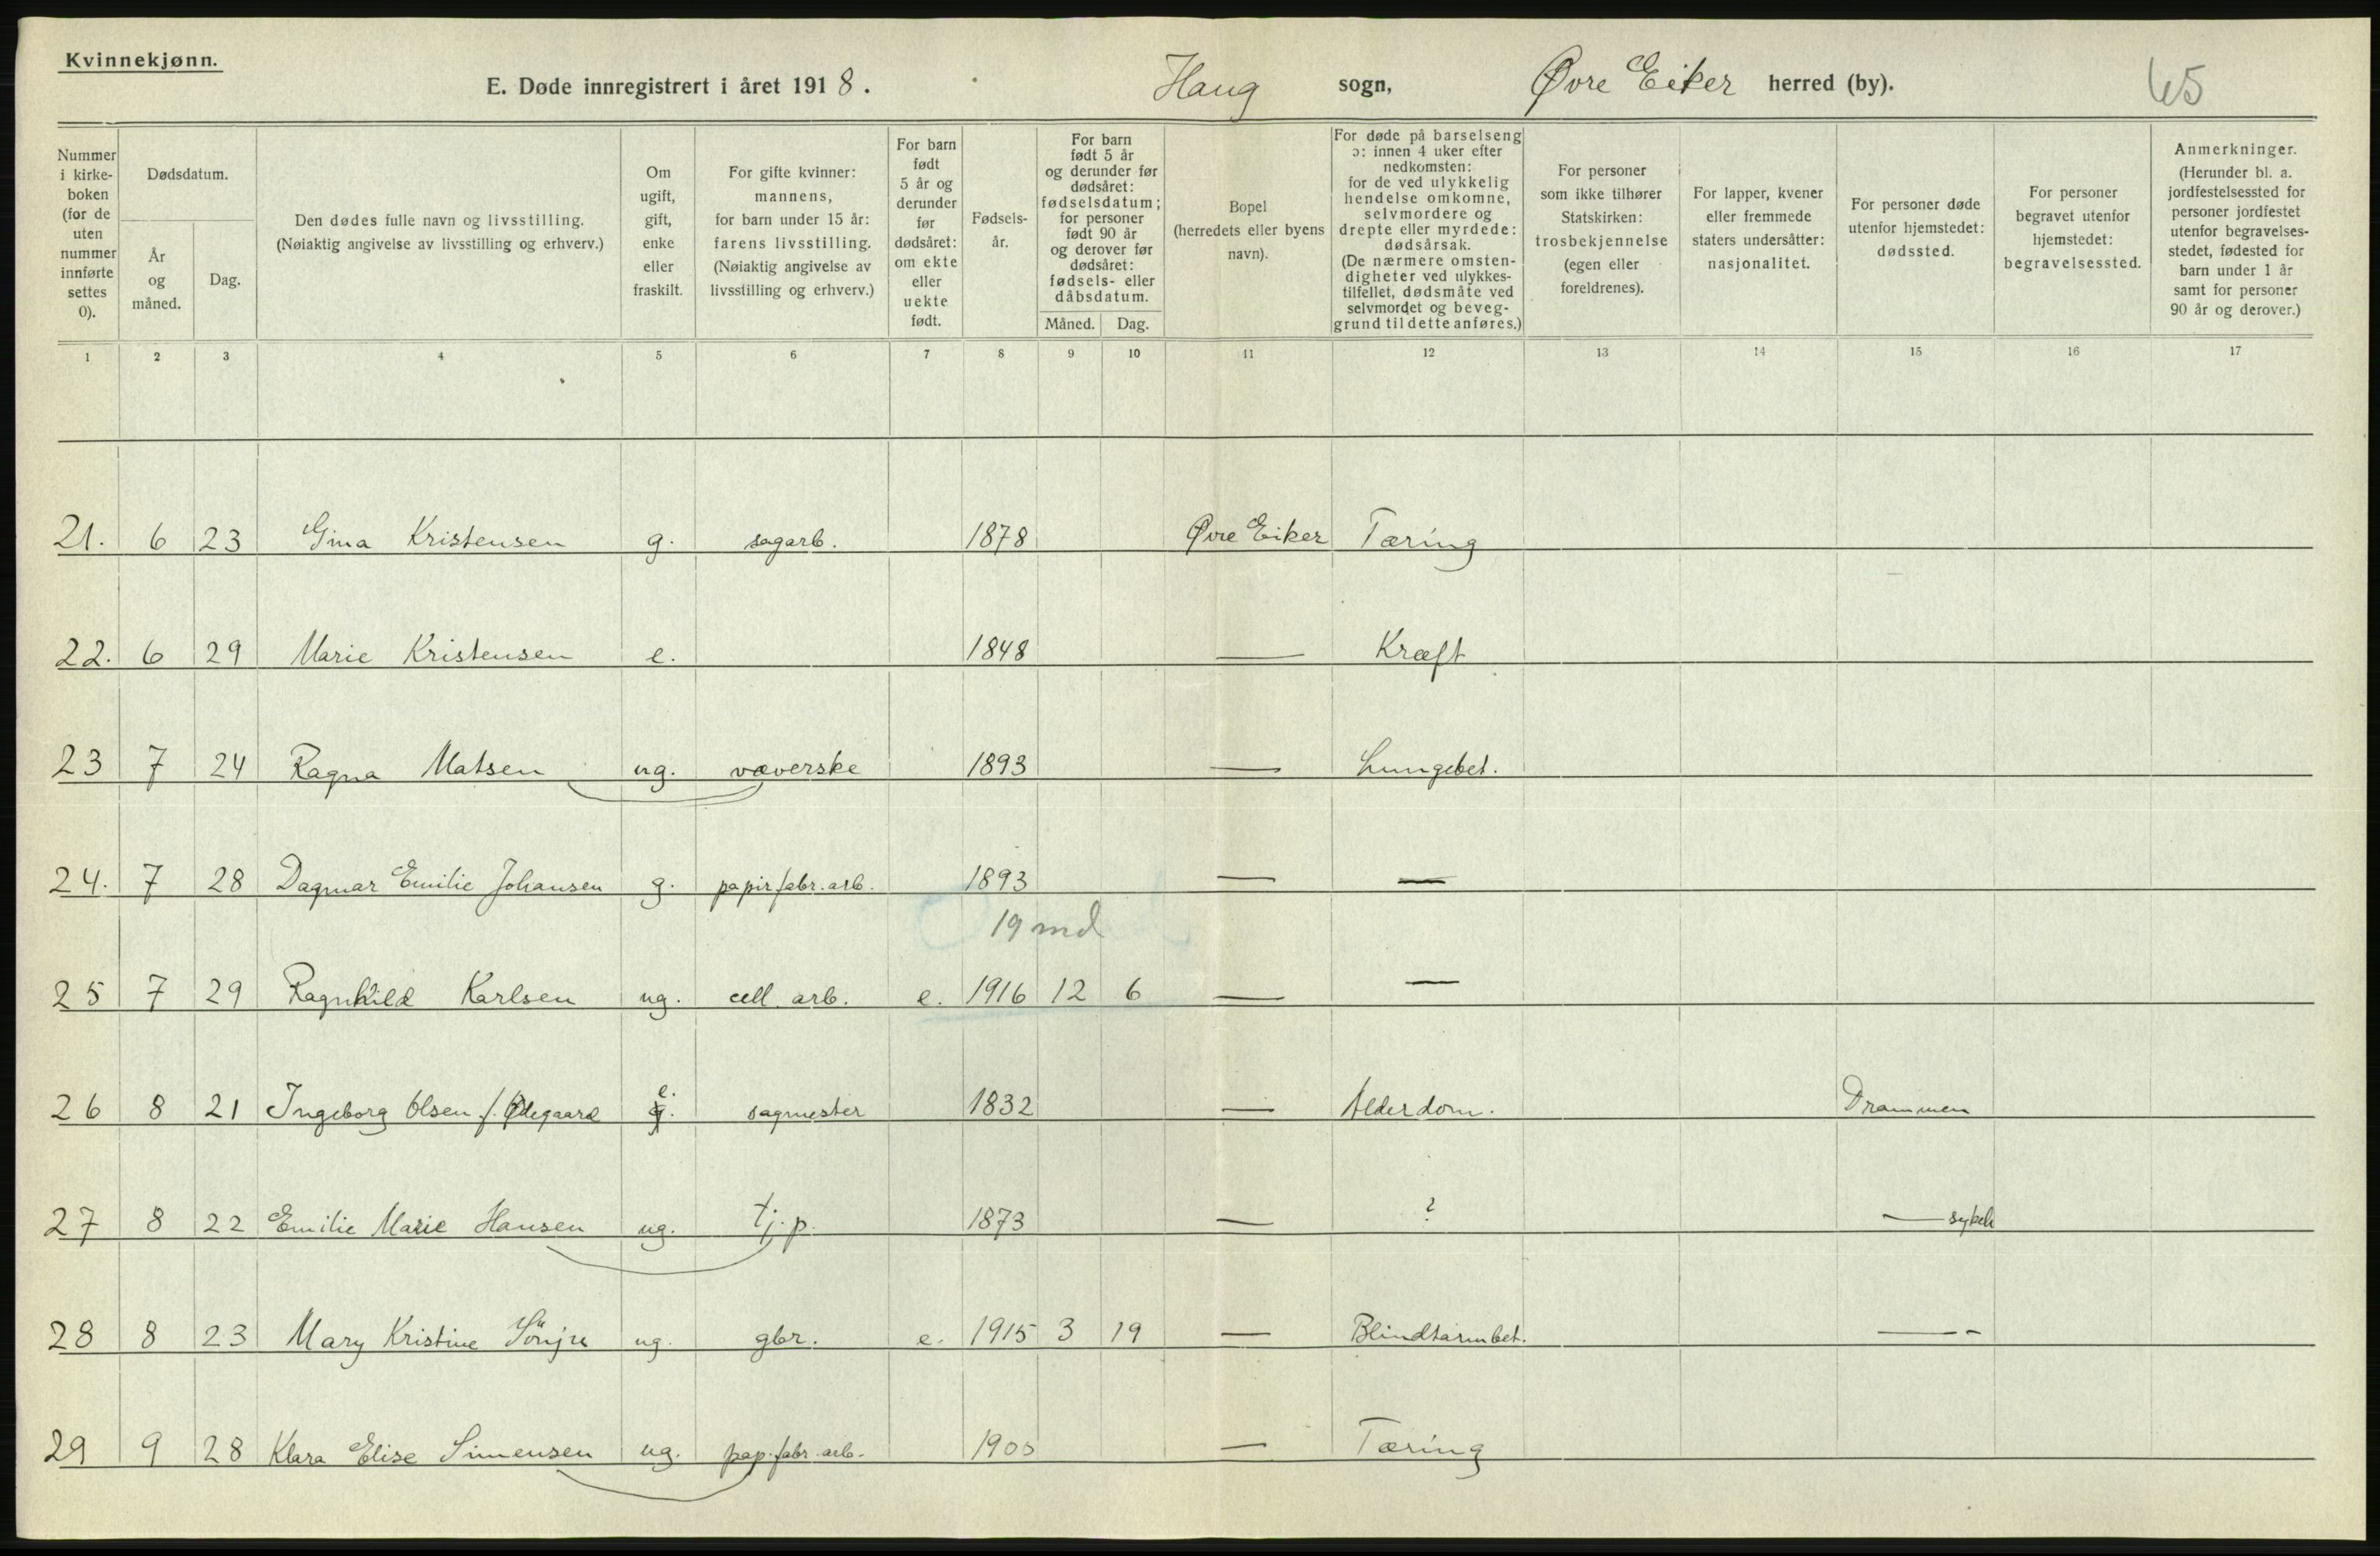 Kvinnekjønn.
E. Døde innregistrert i året 1918. Haug sogn, Øvre Eiker herred (by). 65
Nummer i kirke-boken (for de uten nummer innførte settes 0).
Dødsdatum.
År og måned.
Dag.
Den dødes fulle navn og livsstilling.
(Nøiaktig angivelse av livsstilling og erhverv.)
Om ugift, gift, enke eller fraskilt.
For gifte kvinner: mannens, for barn under 15 år: farens livsstilling. (Nøiaktig angivelse av livsstilling og erhverv.)
For barn født 5 år og derunder før dødsåret: om ekte eller uekte født.
Fødsels-år.
For barn født 5 år og derunder før dødsåret: fødselsdatum; for personer født 90 år og derover før dødsåret: fødsels- eller dåbsdatum.
Måned. Dag.
Bopel (herredets eller byens navn).
For døde på barselseng ɔ: innen 4 uker efter nedkomsten: for de ved ulykkelig hendelse omkomne, selvmordere og drepte eller myrdede: dødsårsak. (De nærmere omsten-digheter ved ulykkes-tilfellet, dødsmåte ved selvmordet og beveg-grund til dette anføres.)
For personer som ikke tilhører Statskirken: trosbekjennelse (egen eller foreldrenes).
For lapper, kvener eller fremmede staters undersåtter: nasjonalitet.
For personer døde utenfor hjemstedet: dødssted.
For personer begravet utenfor hjemstedet: begravelsessted.
Anmerkninger. (Herunder bl. a. jordfestelsessted for personer jordfestet utenfor begravelses-stedet, fødested for barn under 1 år samt for personer 90 år og derover.)
1 2 3 4 5 6 7 8 9 10 11 12 13 14 15 16 17
21. 6 23 Gina Kristensen g. sagarb. 1878 Øvre Eiker Tæring
22. 6 29 Marie Kristensen e. 1848 — Kræft
23 7 24 Ragna Matsen ug. væverske 1893 — Lungebet.
24. 7 28 Dagmar Emilie Johansen g. papirfabr. arb. 1893 — —
19 md
25 7 29 Ragnhild Karlsen ug. cell. arb. e. 1916 12 6 — —
26 8 21 Ingeborg Olsen f. Ødegaard g. e. sagmester 1832 — Alderdom. Drammen
27 8 22 Emilie Marie Hansen ug. tj. p. 1873 — ? — sykeh
28 8 23 Mary Kristine ug. gbr. e. 1915 3 19 — Blindtarmbet. — -
29 9 28 Klara Elise Simensen ug. pap. fabr. arb. 1900 — Tæring